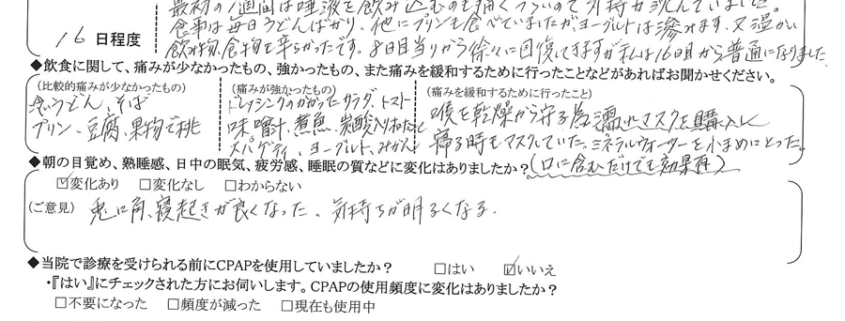 最初の1週間は唾液を飲み込むのも痛くつらいので気持が沈んでいました。
食事は毎日うどんばかり、他にプリンも食べていましたがヨーグルトは滲みます。又温かい
16 日程度
飲み物、食物も辛らかったです。8日目当りから徐々に回復してきますが私は16日目から普通になりました
◆飲食に関して、痛みが少なかったもの、強かったもの、また痛みを緩和するために行ったことなどがあればお聞かせください。
(比較的痛みが少なかったもの)
うどん、そば
プリン、豆腐、果物で桃
(痛みが強かったもの)
ドレッシングのかかったサラダ、トマト
味噌汁、煮魚、炭酸入り
スパゲティ、ヨーグルト、みかん
(痛みを緩和するために行ったこと)
喉を乾燥から守る為濡れマスクを購入し
寝る時もマスクしていた。ミネラルウォーターを小まめにとった。
(口に含むだけでも効果有)
◆朝の目覚め、熟睡感、日中の眠気、疲労感、睡眠の質などに変化はありましたか?
☑変化あり □変化なし □わからない
(ご意見) 兎に角、寝起きが良くなった、気持ちが明るくなる.
◆当院で診療を受けられる前にCPAPを使用していましたか? □はい ☑いいえ
・『はい』にチェックされた方にお伺いします。CPAPの使用頻度に変化はありましたか?
□不要になった □頻度が減った □現在も使用中